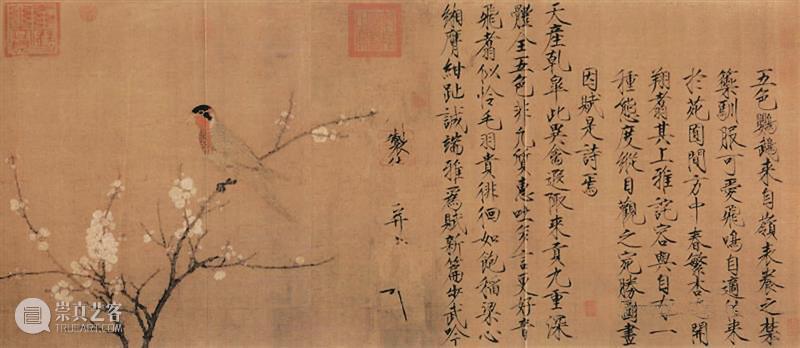 五色鸚鵡來自嶺表養之禁
籞馴服可愛飛鳴自適來
於苑囿間方中春繁杏開
翔翥其上雅詫容與自一
種態度縱目觀之宛勝圖畫
因賦是詩焉
天產乾皋此異禽遐陬來貢九重深
體全五色非凡質惠吐多言更好音
飛翥似憐毛羽貴徘徊如飽稻粱心
緗膺紺趾誠端雅爲賦新篇步武吟
製
崇真艺客
www.trueart.com